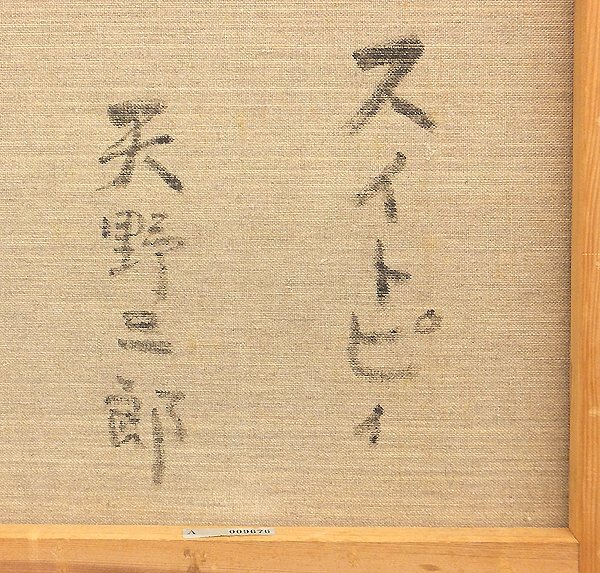 スイトピィ
天野三郎
A 009676